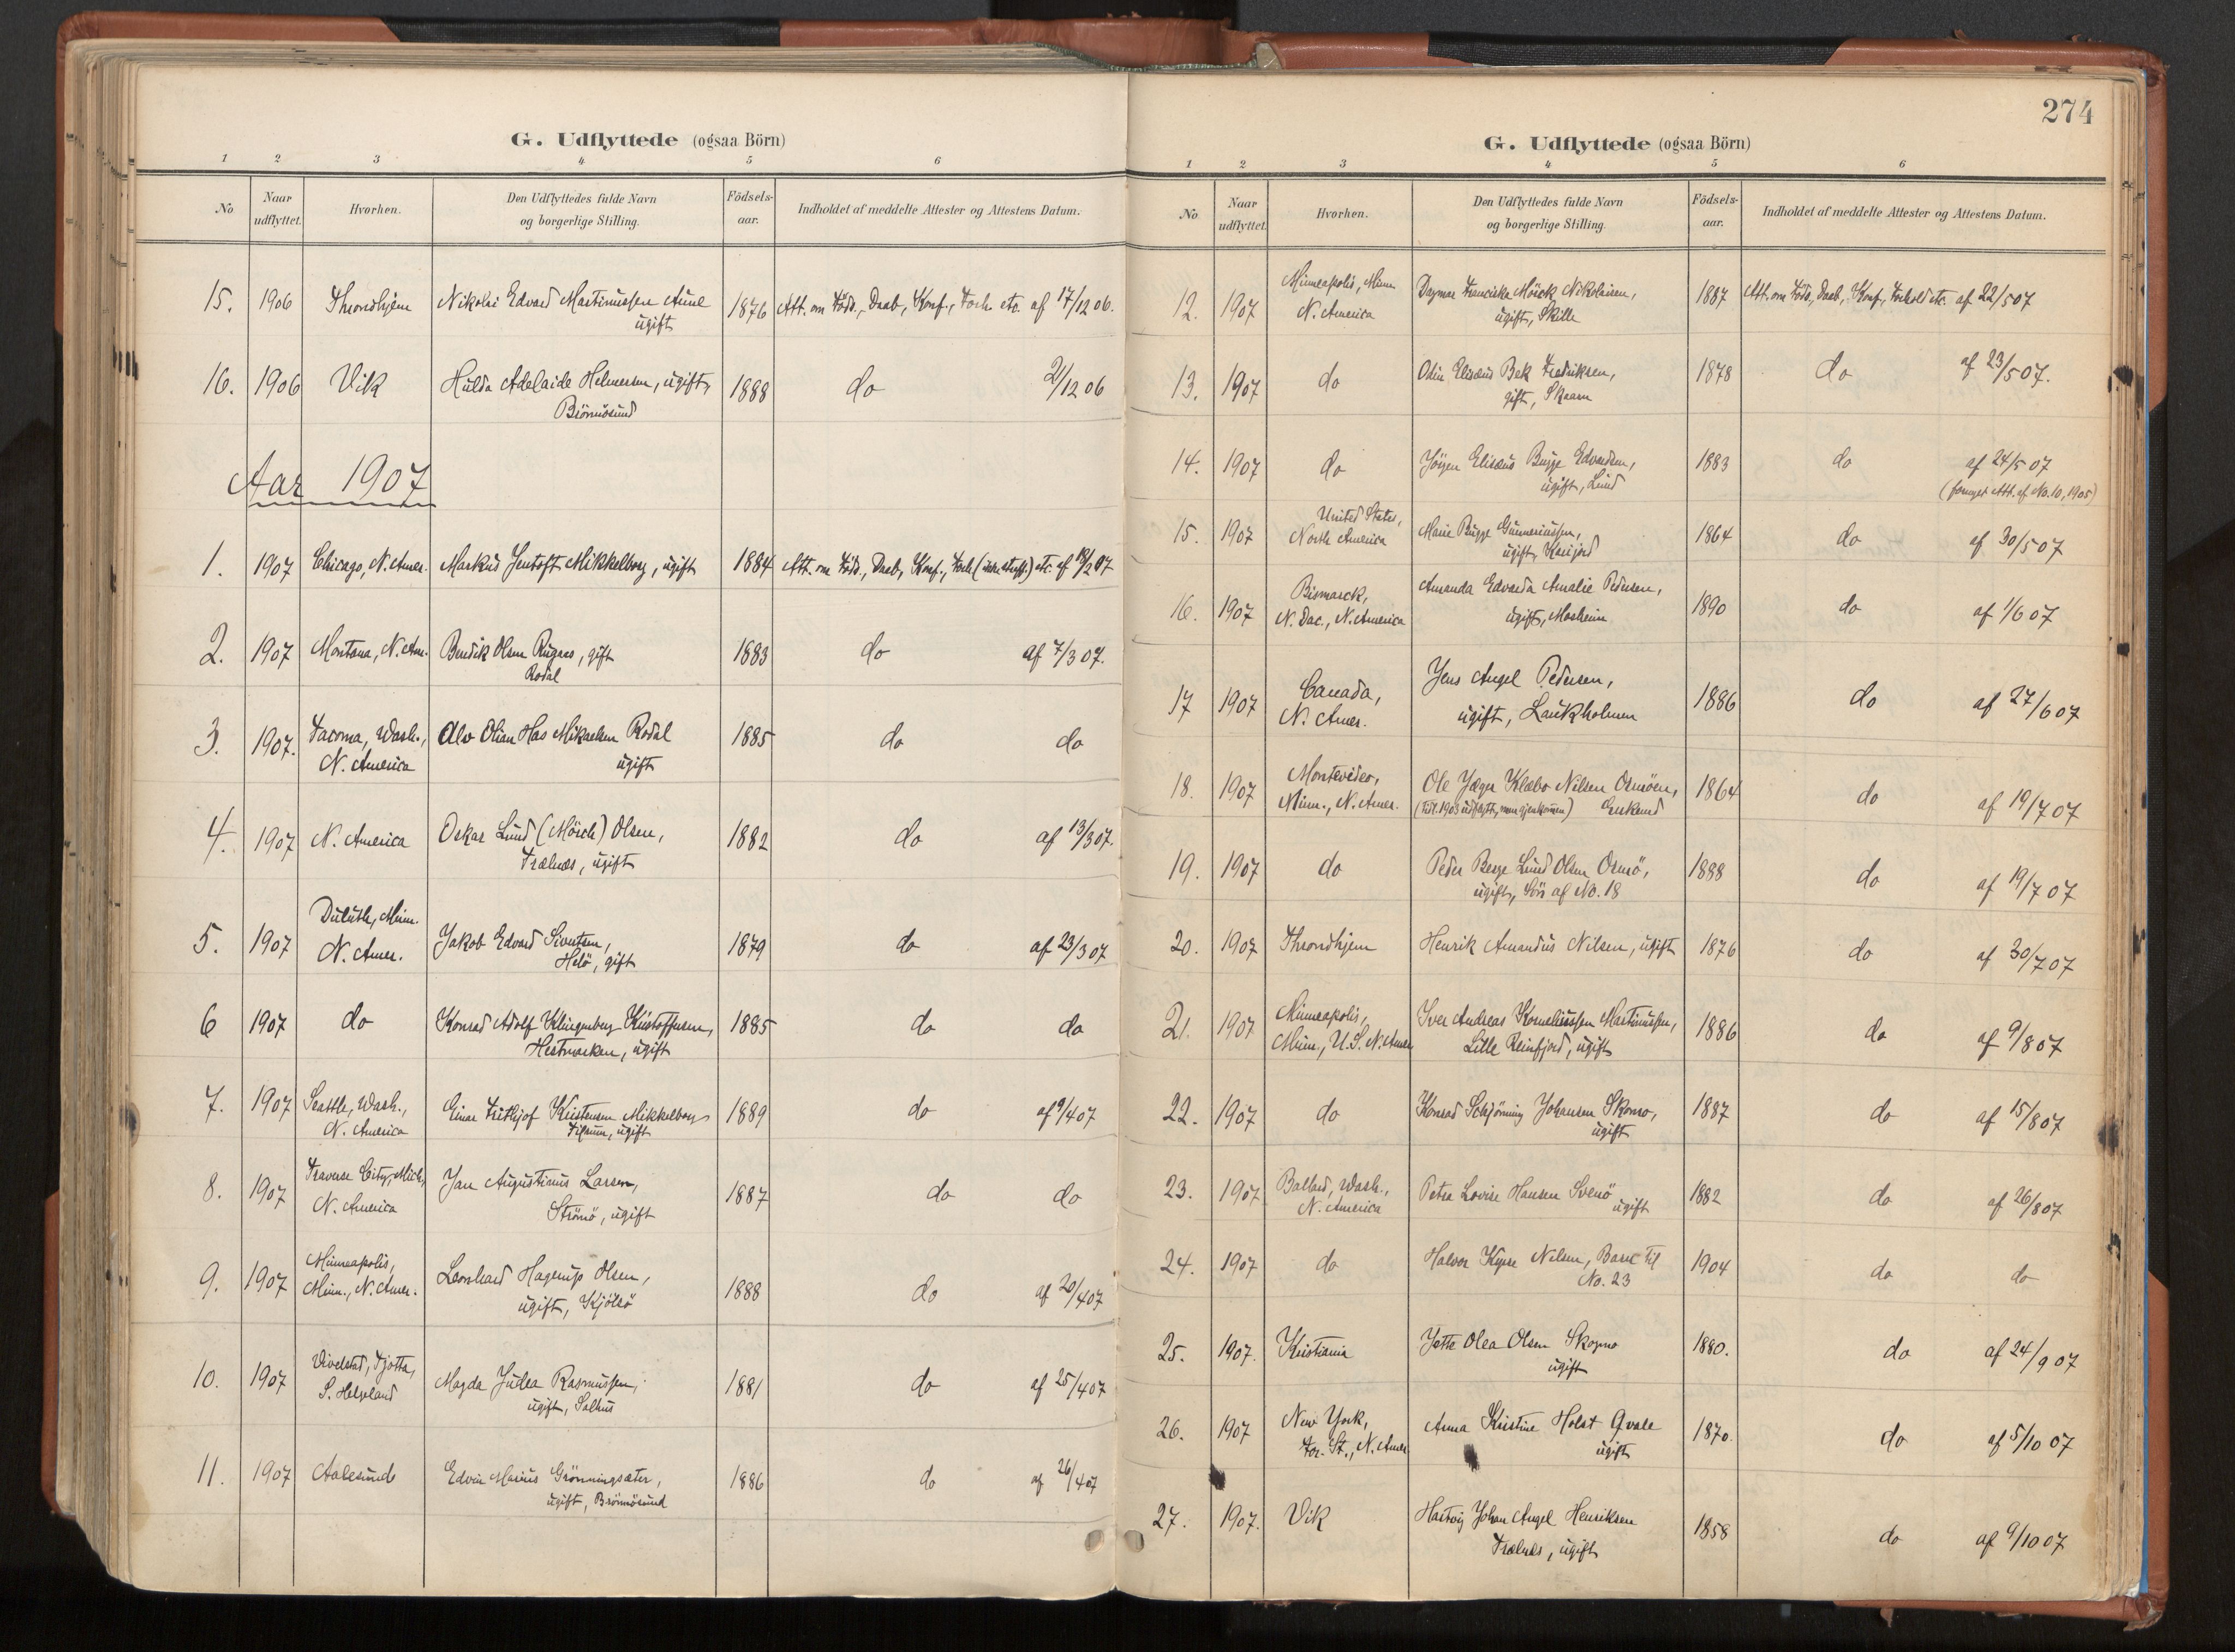 G. Udflyttede (ogsaa Börn)
1 2 3 4 5 6
No. Naar udflyttet. Hvorhen. Den Udflyttedes fulde Navn og borgerlige Stilling. Födsels-aar. Indholdet af meddelte Attester og Attestens Datum.
15. 1906 Throndhjem Nikolai Edvard Martinussen Aune 1876 Att. om Föds., Daab, Konf., Forh. etc. af 17/12 06.
ugift
16. 1906 Vik Hulda Adelaide Helmersen, ugift, 1888 do 2/12 06
Brönnösund
Aar 1907
1. 1907 Chicago, N. Amer. Markus Jentoft Mikkelborg, ugift 1884 Att. om Föds., Daab, Konf., Forh. etc. af
2. 1907 Montana, N. Am. Bendik Olsen, gift 1883 do af 7/3 07.
Rodal
3. 1907. Tacoma, Wash., Alv Olian Has Mikaelsen Rodal 1885 do do
N. America ugift
4. 1907 N. America Oskar Lund (Mörch) Olsen, 1882 do af 13/3 07.
Trælnes, ugift
Duluth, Minn.
5. 1907 N. Amer. Jakob Edvard Sivertsen, 1879 do af 23/3 07
gift
6 1907 do Konrad Adolf Klingenberg Kristoffersen, 1885 do do
Hestmarken, ugift
7. 1907 Seattle, Wash., Einar Frithjof Kristensen Mikkelborg 1889 do af 9/4 07
N. America ugift
8. 1907 Traverse City, Mich., Jan Augustinus Larsen, 1887 do do
N. America Strömö, ugift
Minneapolis,
9. 1907 Minn., N. Amer. Leonhard Hagerup Olsen, 1888 do af 20/4 07
ugift, Kjölsö
10. 1907 Vivelstad, Tjotta, Magda Judea Rasmussen, 1881 do af 25/4 07
S. Helgeland ugift, Salhus
11. 1907 Aalesund Edvin Marius Grönningsæter, 1886 do af 26/4 07
ugift, Brönnösund
274
G. Udflyttede (ogsaa Börn)
1 2 3 4 5 6
No. Naar udflyttet. Hvorhen. Den Udflyttedes fulde Navn og borgerlige Stilling. Födsels-aar. Indholdet af meddelte Attester og Attestens Datum.
Minneapolis, Minn
12. 1907 N. America Dagmar Franciska Mörck Nikolaisen, 1887 Att. om Föds., Daab, Konf., Forhold etc. af 22/5 07
ugift, Skille
13. 1907 do Odin Elisæus Bek Fredriksen, 1878 do af 23/5 07.
gift,
14. 1907 do Jörgen Elisæus Bugge Edvardsen, 1883 do af 24/5 07
ugift, Lund (fornyet Att. af No. 10, 1905)
United States,
15. 1907 North America Marie Bugge Gunneriussen, 1864 do af 30/5 07
ugift,
Bismarck,
16. 1907 N. Dac., N. America Amanda Edvarda Amalie Pedersen, 1890 do af 1/6 07
ugift, Mosheim
17 1907 Canada, Jens Angel Pedersen, 1886 do af 27/6 07
N. Amer. ugift, Laukholmen
18. 1907 Montevideo, Ole Jæger Klæbo Nilsen Osmöen, 1864 do af 19/7 07
Minn., N. Amer. Enkemand
19. 1907 do Peder Berge Lund Olsen Osmö, 1888 do af 19/7 07
ugift, Sön af No. 18
20. 1907 Throndhjem Henrik Amandus Nilsen, ugift 1876 do af 30/7 07
21. 1907 Minneapolis, Iver Andreas Korneliussen Martinussen, 1886 do af 9/8 07
Minn., U. S. N. Amer Lille Reinfjord, ugift
22. 1907 do Konrad Schjönning Johansen Skomo, 1887 do af 15/8 07
ugift
23. 1907 Ballard, Wash., Petra Lovise Hansen Svenö 1882 do af 26/8 07
N. America ugift
24. 1907 do Halvor Kyrre Nilsen, Barn til 1904 do do
No. 23
25. 1907. Kristiania Jette Olea Olsen Skogmo 1880. do af 24/9 07
ugift
26. 1907 New York, Anna Kristine Holst Qvale 1870. do af 5/10 07
For. St., N. Amer ugift
27. 1907. Vik Hartvig Johan Angel Henriksen 1858 do af 9/10 07
Trælnes, ugift